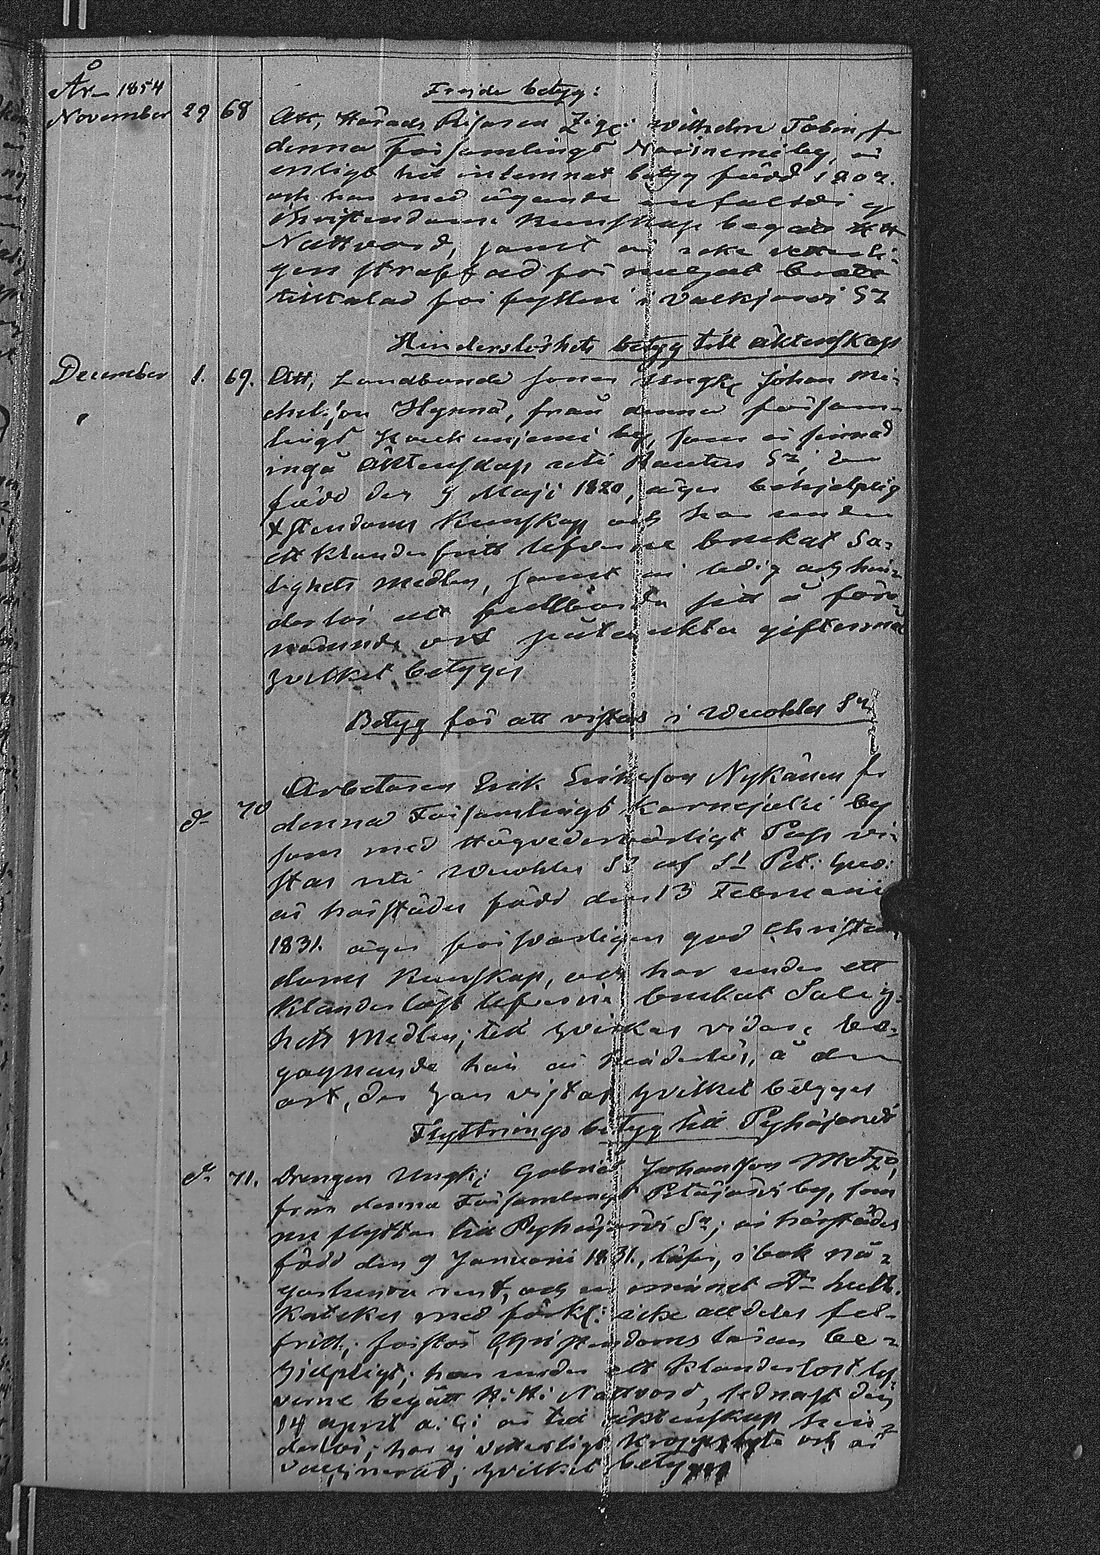 År 1854
Frejde betyg:
November 29 68 Att, Härads
denna Församlings by, är
enligt hit inlemnat betyg född 180
och har med ägande
Christendoms Kunskap begått
Nattvard, samt är icke
gen straffad för något
tilltalad för fylleri i Valkjärvi Sn
Hinderslöshets betyg till äktenskap
December 1. 69. Att, Landbonde Sonen Ungk: Johan Mi-
chelsson Hynnä, från denna försam-
lings by, som är sinnad
ingå Äktenskap uti Rautus Sn, är
född den 9 Maji 1820, äger behjelplig
Xstendoms Kunskap och har under
ett klanderfritt lefverne brukat Sa-
lighets medlen, samt är ledig och hin-
derlös att fullborda sitt å före-
nämnde ort påtänkta giftermål
hvilket betygas
Betyg för att vistas i Wuoles Sn
do 70 Arbetaren Erik Eriksson Nykänen fr
denna Församlings by
som med Högvederbörligt Pass vi-
stas uti Wuoles Sn af St Pet: Guv:
är härstädes född den 13 Februarii
1831. äger försvarligen god Christen-
doms Kunskap, och har under ett
klanderlöst lefverne brukat Salig-
hets Medlen; till hvilkas vidare be-
gagnande han är hinderlös, å den
ort, der han vistas hvilket betygas
Flyttnings betyg till Pyhäjärvi
do 71. Drengen Ungk: Gabriel Johansson
från denna Församlings Petäjärvi by, som
nu flyttar till Pyhäjärvi Sn; är härstädes
född den 9 Januarii 1831., läser, i bok nå-
gorlunda rent, och
Kateket med förkl: icke alldeles fel-
fritt, förstår Christendoms läran be-
hjelpligt; har under ett klanderlöst lef-
verne begått H: H: Nattvard, sednast den
14 April a: c: är till äktenskap hin-
derlös; har ej vetterligt kroppslyte och är
vaccinerad; hvilket betygas